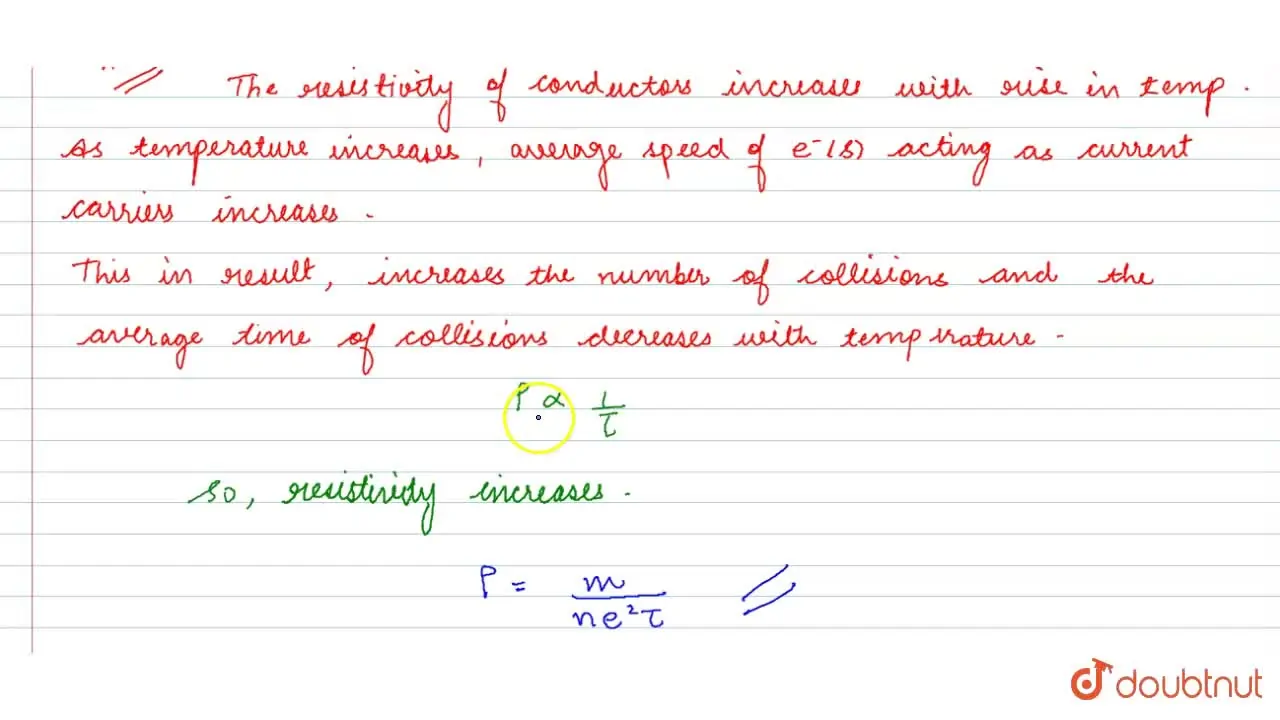 The resistivity of conductors increases with rise in temp.
As temperature increases, average speed of e⁻(s) acting as current
carriers increases.
This in result, increases the number of collisions and the
average time of collisions decreases with temperature.
ρ ∝ 1/τ
so, resistivity increases.
ρ = m/ne²τ
doubtnut